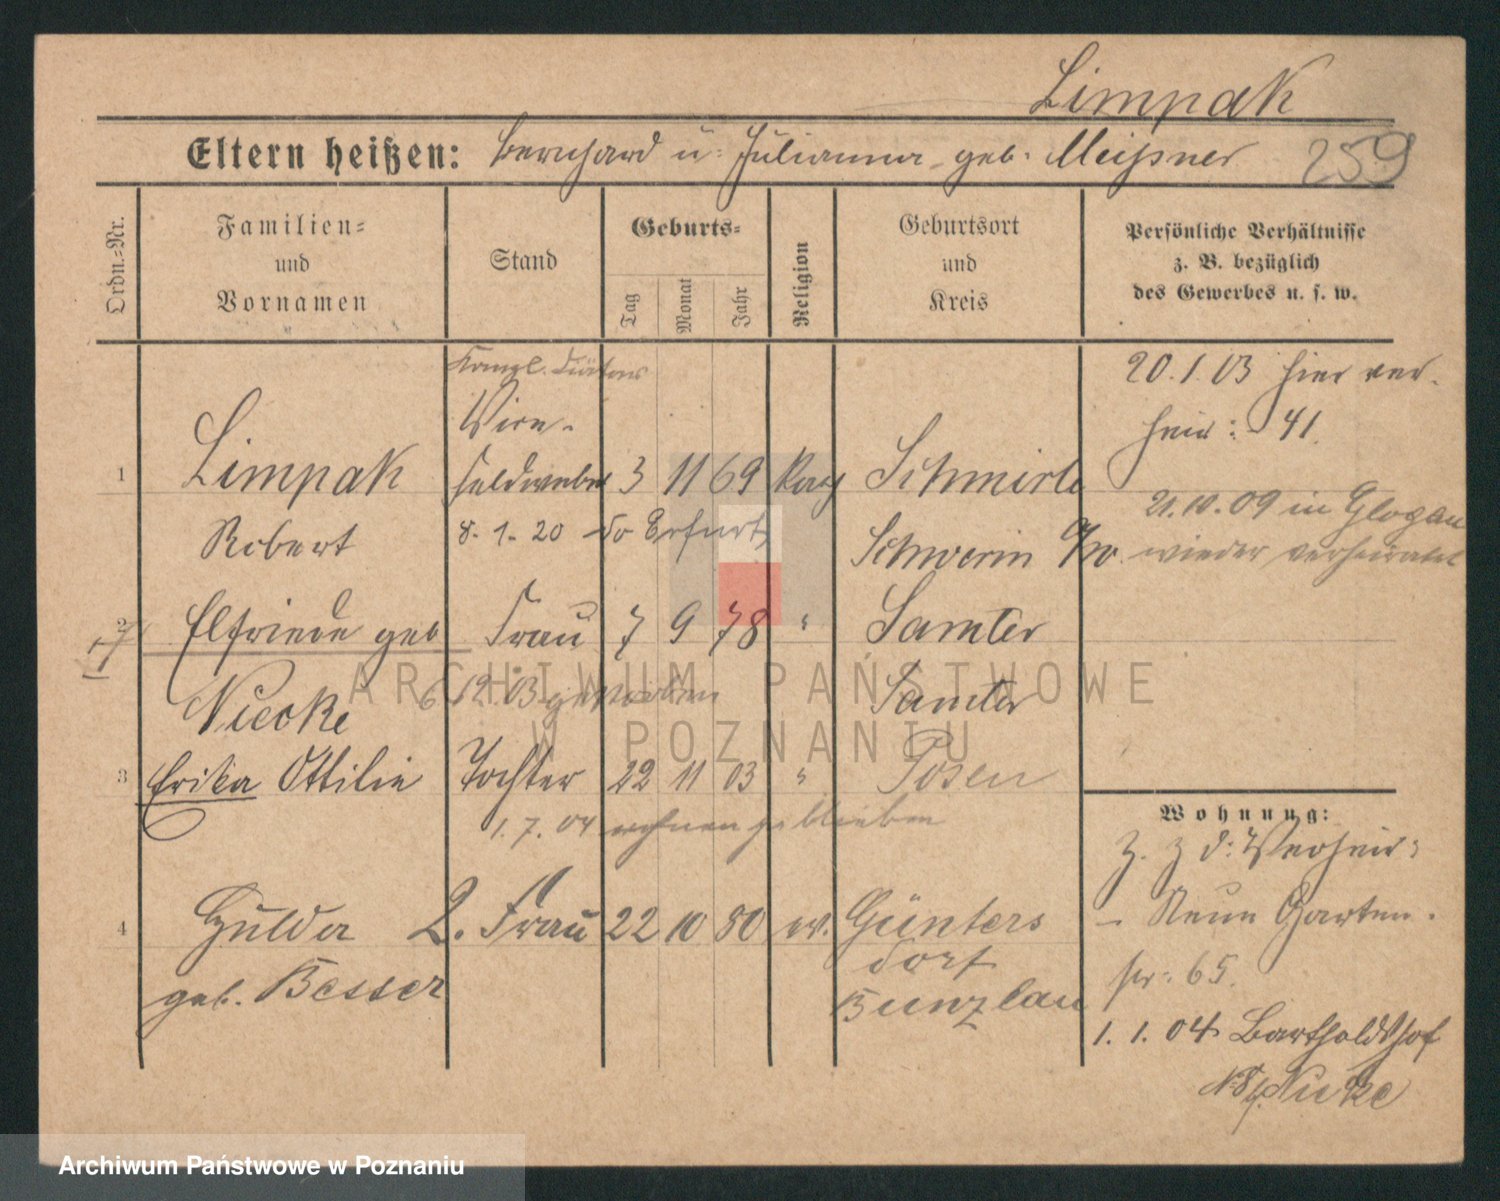 Limpak
Eltern heißen: Bernhard u. Julianna geb. Meißner 259
Ordn.=Nr.
Familien=
und
Vornamen
Stand
Geburts=
Tag
Monat
Jahr
Religion
Geburtsort
und
Kreis
Persönliche Verhältnisse
z. B. bezüglich
des Gewerbes u. s. w.
Kanzl. Diätar
20.1.03 hier ver-
Vice-
heir: 41.
1 Limpak feldwebel 3 11 69 Schmirtl
21.10.09 in Glogau
Robert 8.1.20 Erfurt Schwerin a/w. wieder verheiratet
2 Elfriede geb Frau 7 9 78 " Samter
Niecke 6 12.03 gestorben Samter
3 Erika Ottilie Tochter 22 11 03 " Posen
1.7.04 wohnen geblieben
Wohnung:
z. z d: Verheir:
4 Hulda 2. Frau 22 10 80 ev. Günters
dorf
- Neue Garten-
geb. Besser Bunzlau
str. 65.
1.1.04 Bartholdshof
Niecke
ARCHIWUM PAŃSTWOWE
W POZNANIU
Archiwum Państwowe w Poznaniu